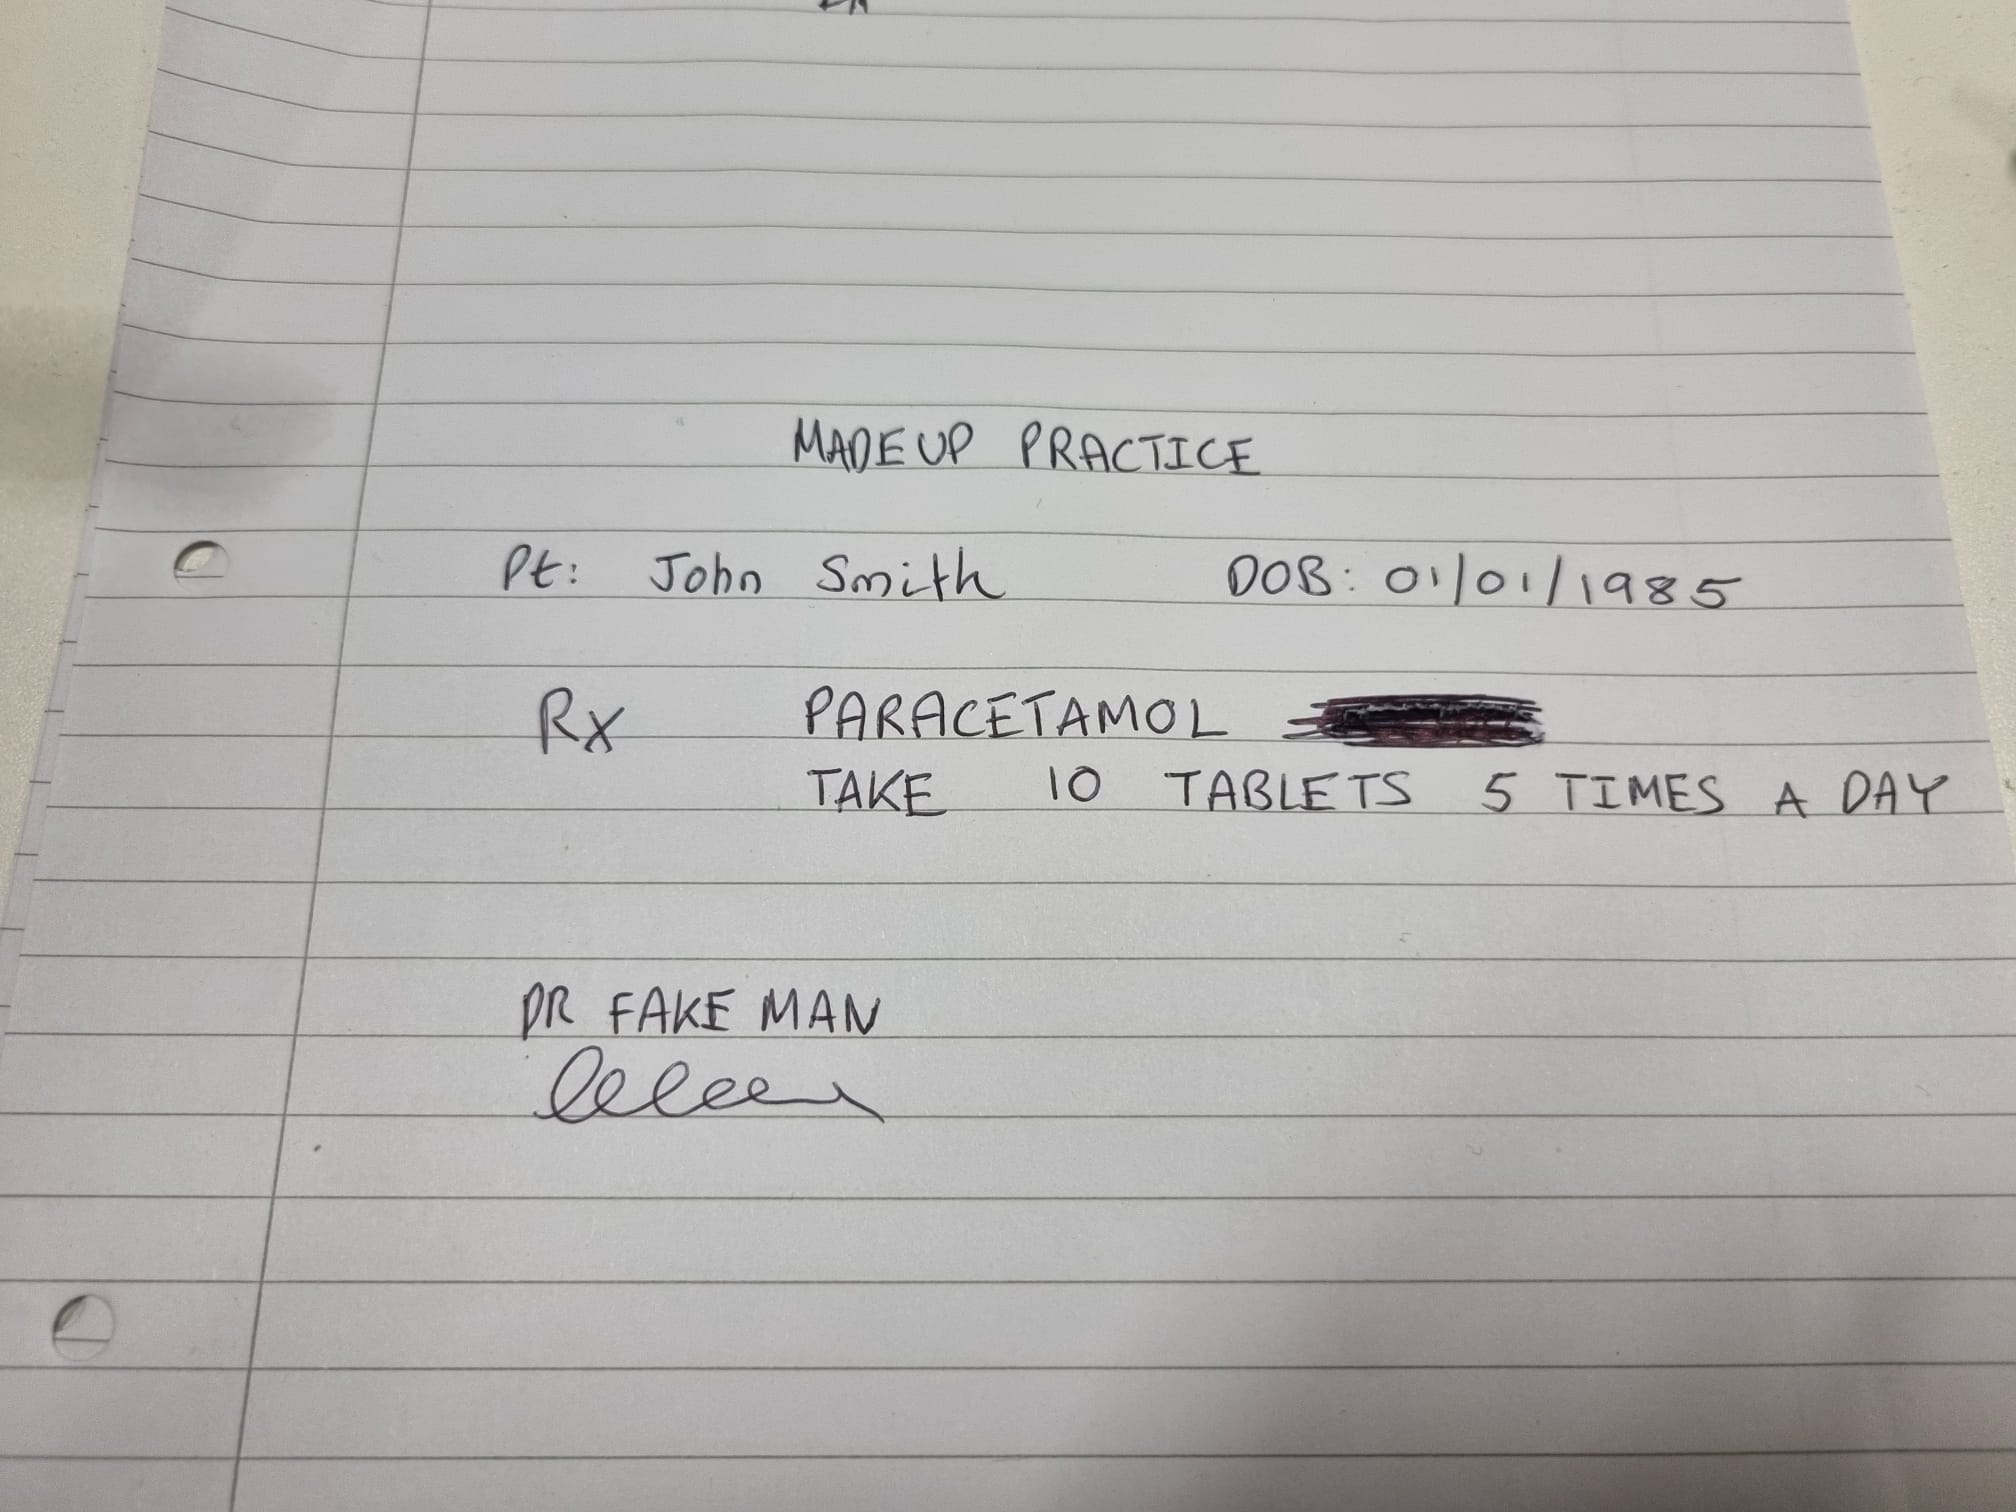 MADE UP PRACTICE
Pt: John Smith DOB: 01/01/1985
Rx PARACETAMOL
TAKE 10 TABLETS 5 TIMES A DAY
DR FAKE MAN